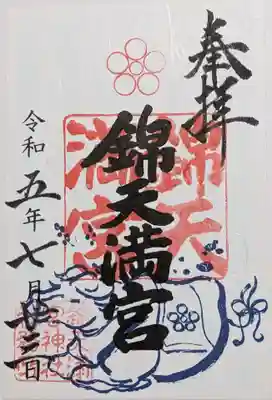 奉拝
錦天満宮
錦天
満宮
令和五年七月廿三日